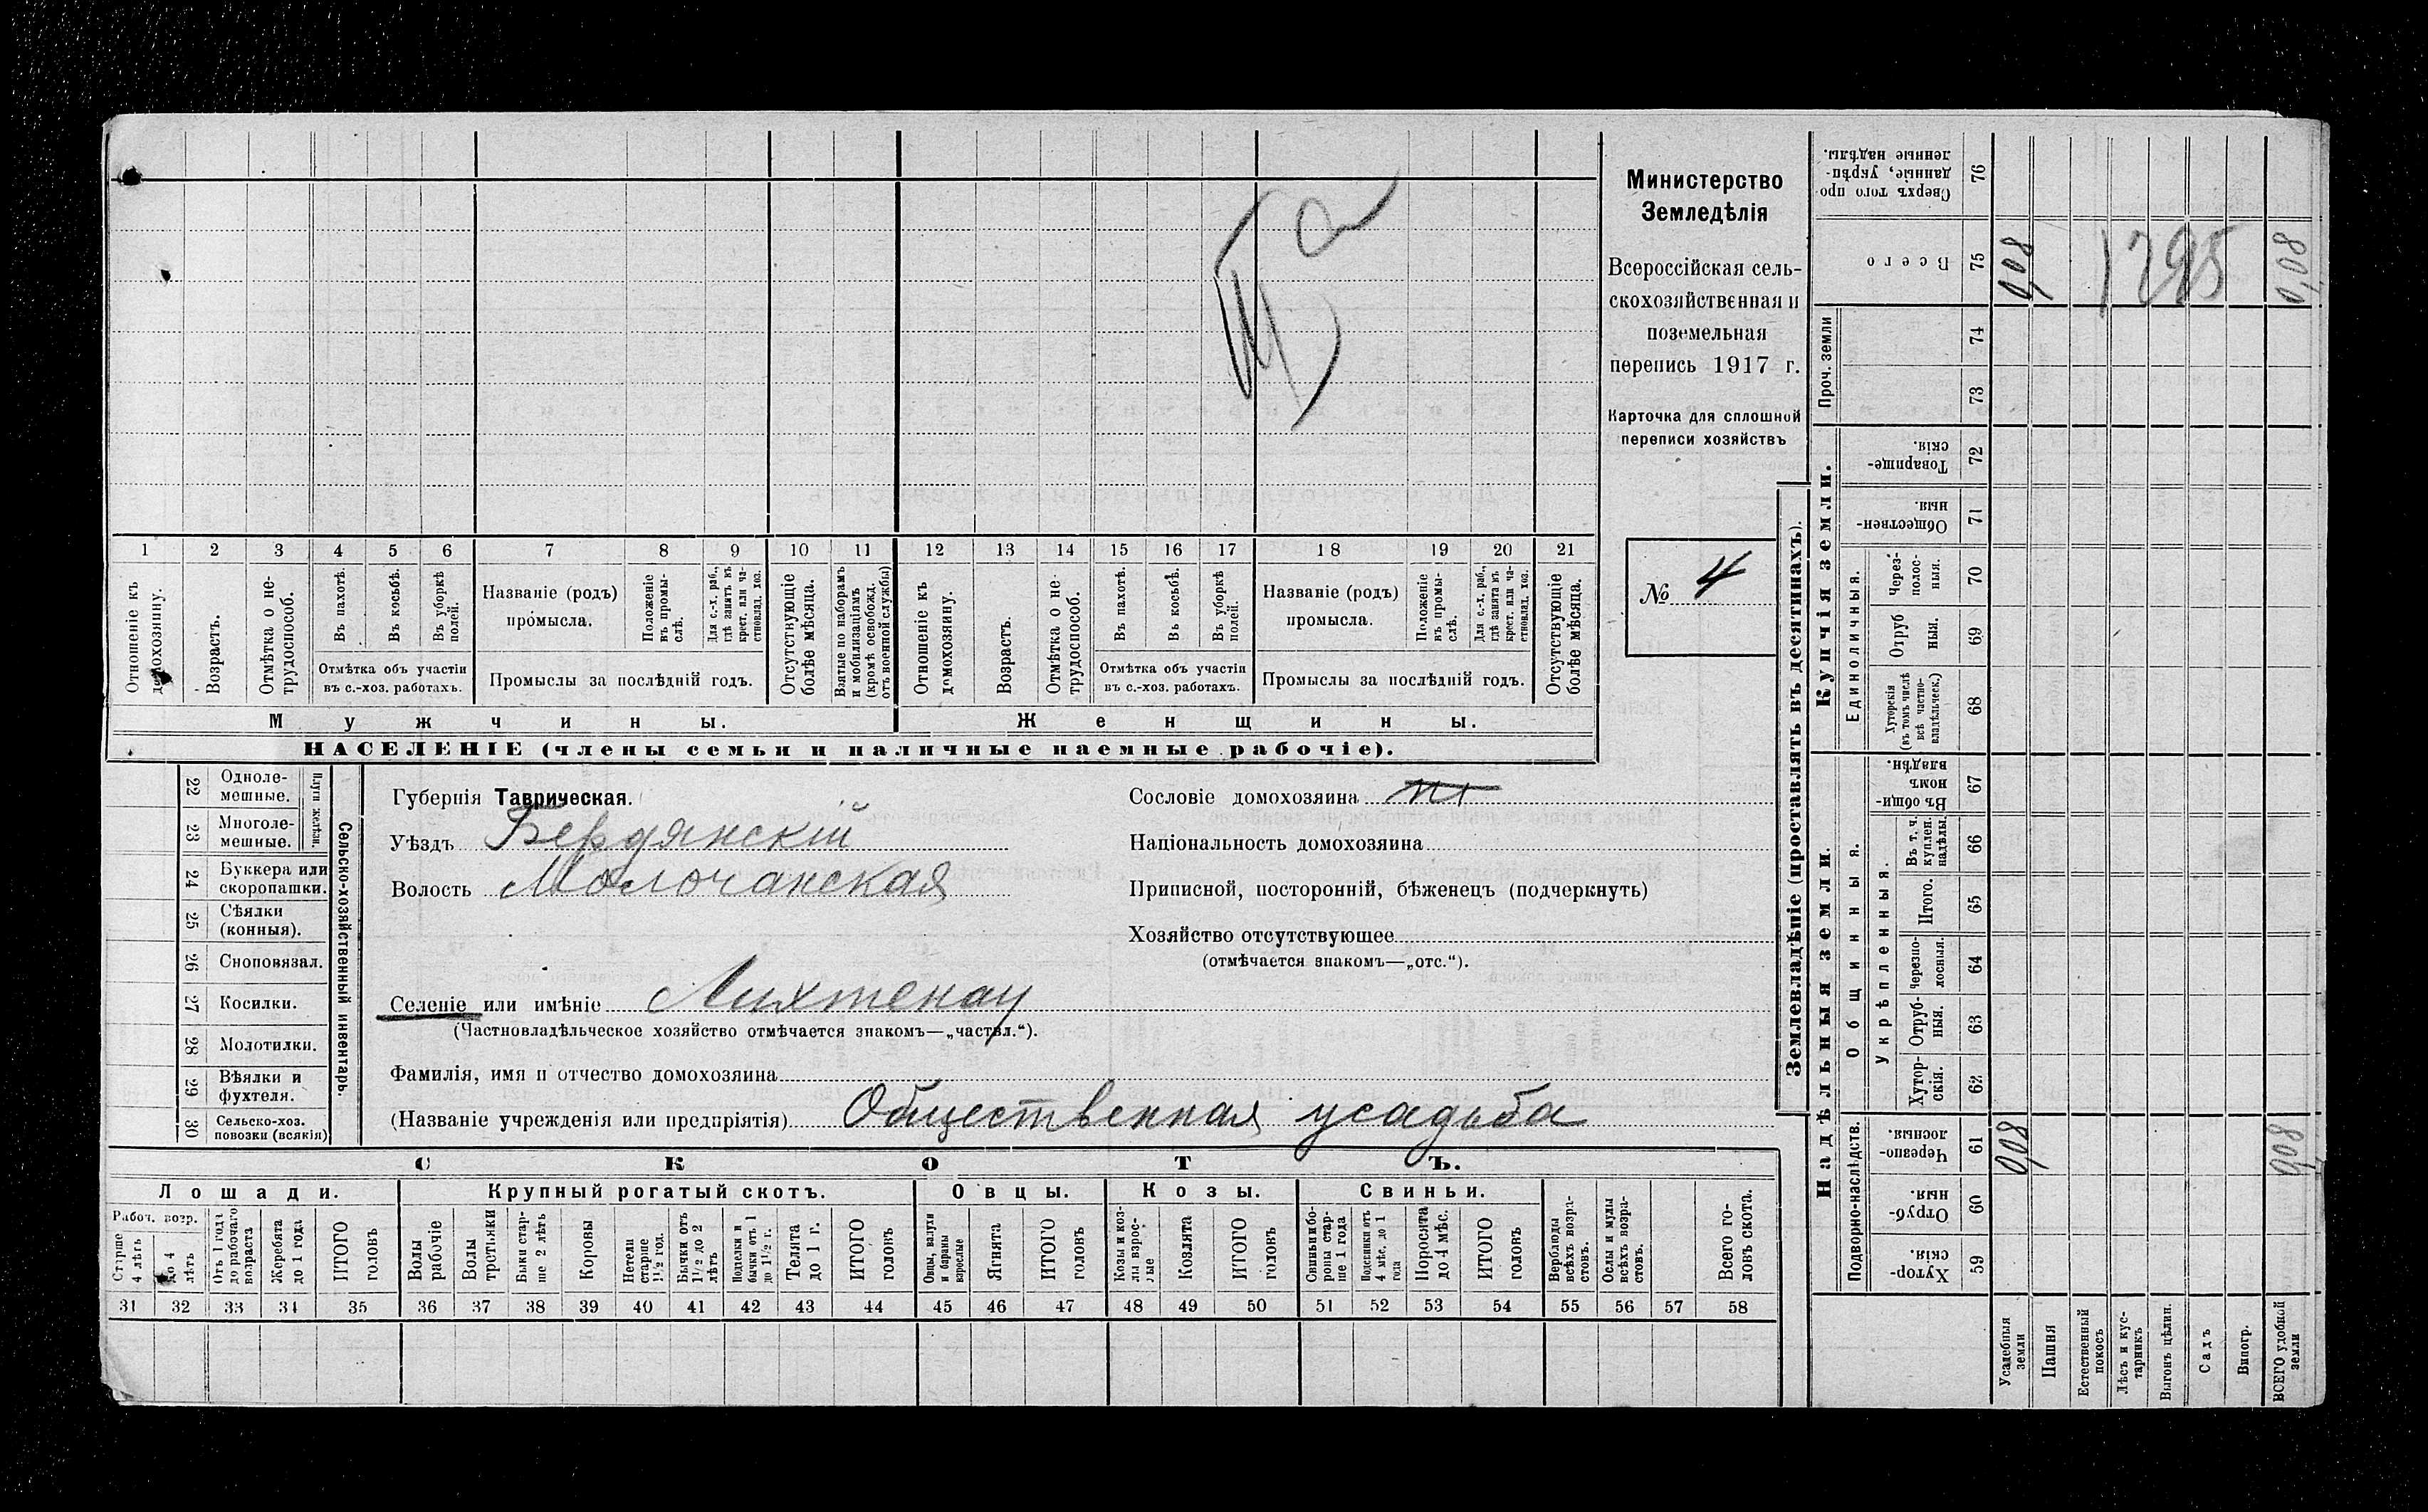 Министерство
Земледѣлія
Всероссійская сель-
скохозяйственная и
поземельная
перепись 1917 г.
Карточка для сплошной
переписи хозяйствъ
№ 4
1 2 3 4 5 6 7 8 9 10 11 12 13 14 15 16 17 18 19 20 21
Отношеніе къ домохозяину.
Возрастъ.
Отмѣтка о не-трудоспособ.
Въ пахотѣ.
Въ косьбѣ.
Въ уборкѣ полей.
Отмѣтка объ участіи
въ с.-хоз. работахъ.
Названіе (родъ)
промысла.
Положеніе въ промы-слѣ.
Для с.-х. раб., гдѣ занятъ въ крест. или ча-стновлад. хоз.
Промыслы за послѣдній годъ.
Отсутствующіе болѣе мѣсяца.
Взятые по наборамъ и мобилизаціямъ (кромѣ освобожд. отъ военной службы)
Отношеніе къ домохозяину.
Возрастъ.
Отмѣтка о не-трудоспособ.
Въ пахотѣ.
Въ косьбѣ.
Въ уборкѣ полей.
Отмѣтка объ участіи
въ с.-хоз. работахъ.
Названіе (родъ)
промысла.
Положеніе въ промы-слѣ.
Для с.-х. раб., гдѣ занята въ крест. или ча-стновлад. хоз.
Промыслы за послѣдній годъ.
Отсутствующіе болѣе мѣсяца.
Мужчины.
Женщины.
НАСЕЛЕНІЕ (члены семьи и наличные наемные рабочіе).
Сельско-хозяйственный инвентарь.
Плуги желѣзн.
22 Одноле-
мешные.
23 Многоле-
мешные.
24 Буккера или
скоропашки.
25 Сѣялки
(конныя).
26 Сноповязал.
27 Косилки.
28 Молотилки.
29 Вѣялки и
фухтеля.
30 Сельско-хоз.
повозки (всякія)
Губернія Таврическая.
Уѣздъ Бердянскій
Волость Молочанская
Селеніе или имѣніе Лихтенау
(Частновладѣльческое хозяйство отмѣчается знакомъ—„частвл.“).
Фамилія, имя и отчество домохозяина
(Названіе учрежденія или предпріятія) Общественная усадьба
Сословіе домохозяина
Національность домохозяина
Приписной, посторонній, бѣженецъ (подчеркнуть)
Хозяйство отсутствующее
(отмѣчается знакомъ—„отс.“).
СКОТЪ.
Лошади.
Крупный рогатый скотъ.
Овцы.
Козы.
Свиньи.
Рабоч. возр.
Старше 4 лѣтъ
до 4 лѣтъ
Отъ 1 года до рабочаго возраста
Жеребята до 1 года
ИТОГО головъ
Волы рабочіе
Волы третьяки
Быки стар-ше 2 лѣтъ
Коровы
Нетели старше 1½ год.
Бычки отъ 1½ до 2 лѣтъ
Подтелки и бычки отъ 1 до 1½ г.
Телята до 1 г.
ИТОГО головъ
Овцы, валухи и бараны взрослые
Ягнята
ИТОГО головъ
Козы и коз-лы взрос-лые
Козлята
ИТОГО головъ
Свиньи и бо-ровы стар-ше 1 года
Подсвинки отъ 4 мѣс. до 1 года
Поросята до 4 мѣс.
ИТОГО головъ
Верблюды всѣхъ возра-стовъ.
Ослы и мулы всѣхъ возра-стовъ.
Всего го-ловъ скота.
31 32 33 34 35 36 37 38 39 40 41 42 43 44 45 46 47 48 49 50 51 52 53 54 55 56 57 58
Землевладѣніе (проставлять въ десятинахъ).
Надѣльныя земли.
Купчія земли.
Проч. земли
Подворно-наслѣдств.
Общинныя.
Укрѣпленныя.
Единоличныя.
Сверхъ того про-данные, укрѣп-ленные надѣлы. 76
Всего 75 0,08 1295 0,08
74
73
Товарище-скія. 72
Обществен-ныя. 71
Через-полос-ныя. 70
Отруб ныя. 69
Хуторскія (въ томъ числѣ всѣ частно-владѣльческ.) 68
Въ общин-номъ владѣн. 67
Въ т. ч. куплен. надѣлы. 66
Итого. 65
Черезпо-лосныя. 64
Отруб-ныя. 63
Хутор-скія. 62
Черезпо-лосныя. 61 0,08 0,08
Отруб-ныя. 60
Хутор-скія. 59
Усадебныя земли
Пашня
Естественный покосъ
Лѣсъ и кус-тарникъ
Выгонъ цѣлин.
Садъ
Виногр.
ВСЕГО удобной земли